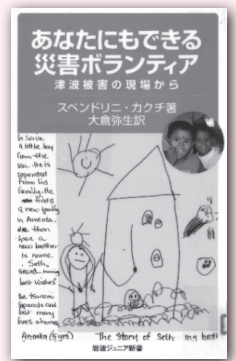 あなたにもできる
災害ボランティア
津波被害の現場から
スベンドリニ・カクチ著
大倉弥生訳
a little boy
from the
sea. He is
separated
from his
family. He
finds
a new family
in America.
then
has a
new brother
is name
Seth.
best wishes
the tsunami
separate and
lost many
lives & homes
(5 yrs)
The Story of Seth my
岩波ジュニア新書